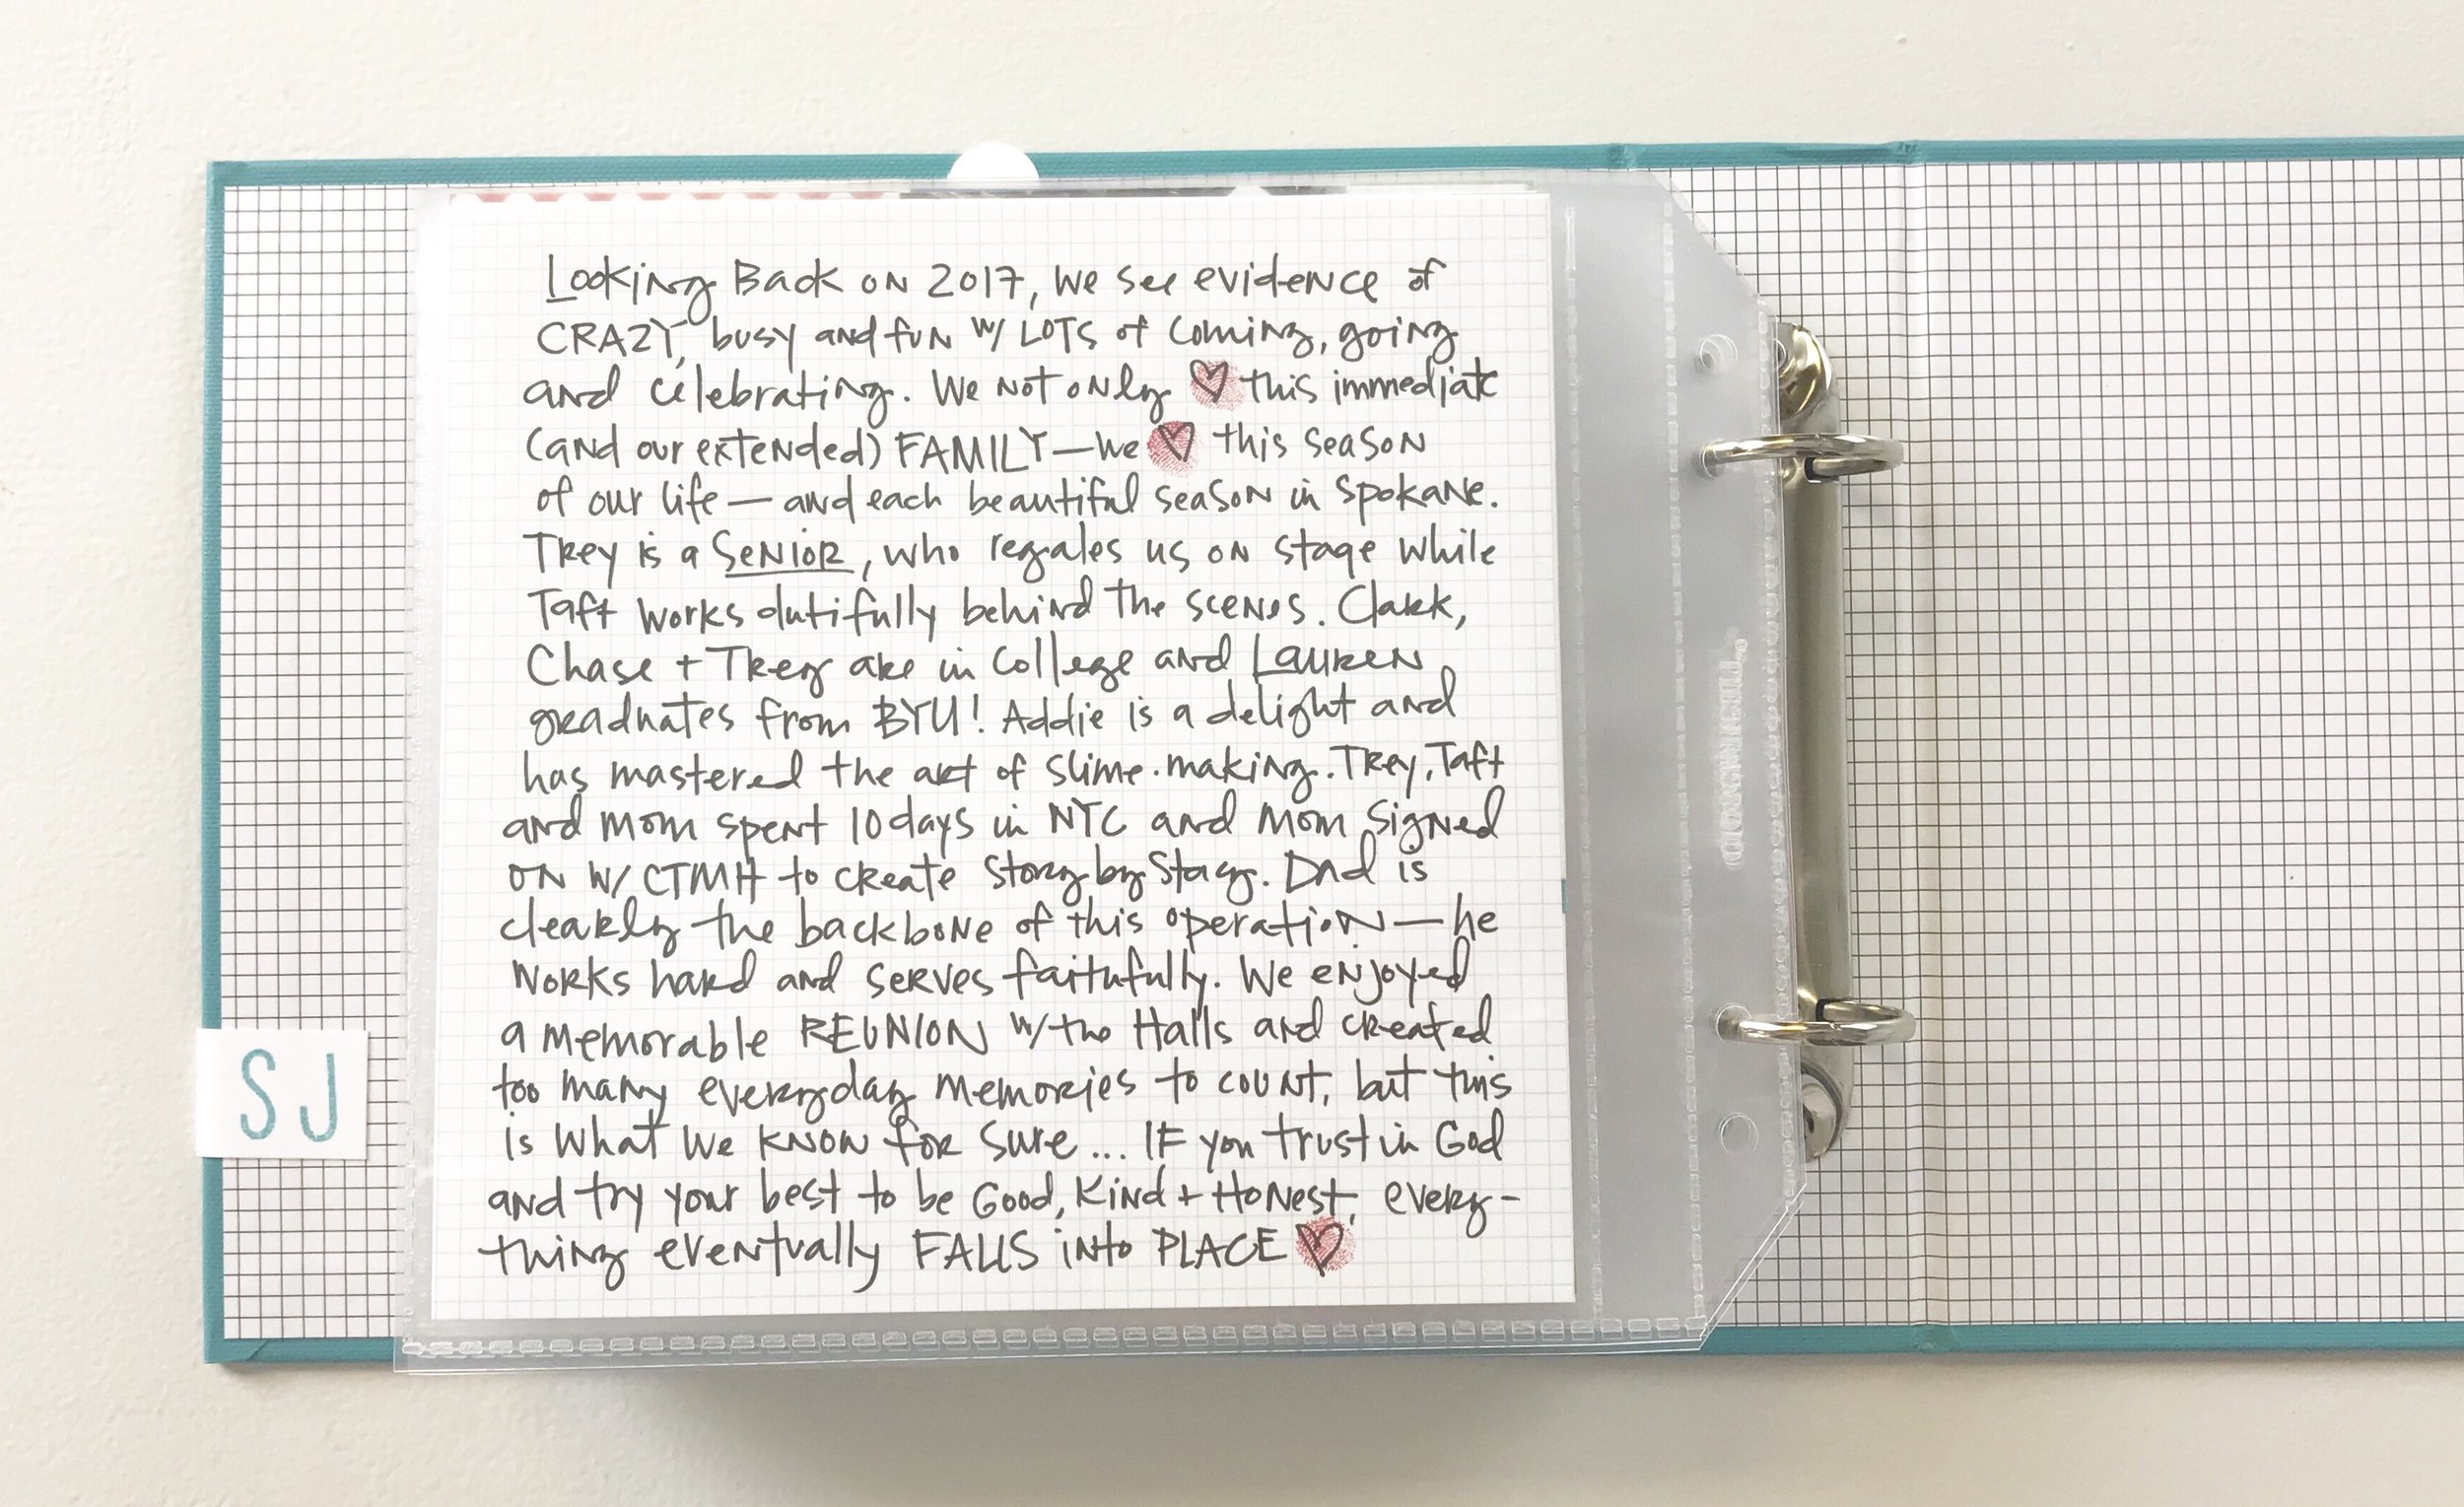 Looking Back on 2017, we see evidence of
CRAZY, busy and fun w/ LOTS of coming, going
and celebrating. We not only ♡ this immediate
(and our extended) FAMILY—we ♡ this season
of our life — and each beautiful season in Spokane.
Trey is a SENIOR, who regales us on stage while
Taft works dutifully behind the scenes. Clark,
Chase + Trey are in college and Lauren
graduates from BYU! Addie is a delight and
has mastered the art of slime-making. Trey, Taft
and mom spent 10 days in NYC and mom signed
on w/ CTMH to create Story by Stacy. Dad is
clearly the backbone of this operation — he
works hard and serves faithfully. We enjoyed
a memorable REUNION w/ the Halls and created
too many everyday memories to count, but this
is what we know for sure... IF you trust in God
and try your best to be Good, Kind + Honest, every-
thing eventually FALLS into PLACE ♡
SJ